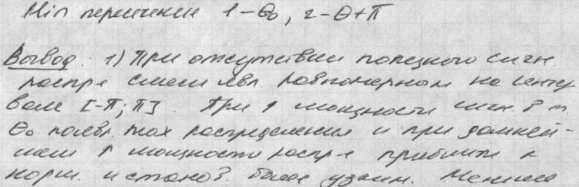 Min перечисли 1-Θ₀, 2-Θ+π
Вывод. 1) При отсутствии полезного сигн
распре смеси явл. равномерном на интер
вале [-π; π]. При ↑ мощности сигн в т
Θ₀ появл. max распределения и при дальней-
шем ↑ мощности распр-е приближ к
норм. и станов. более узким.